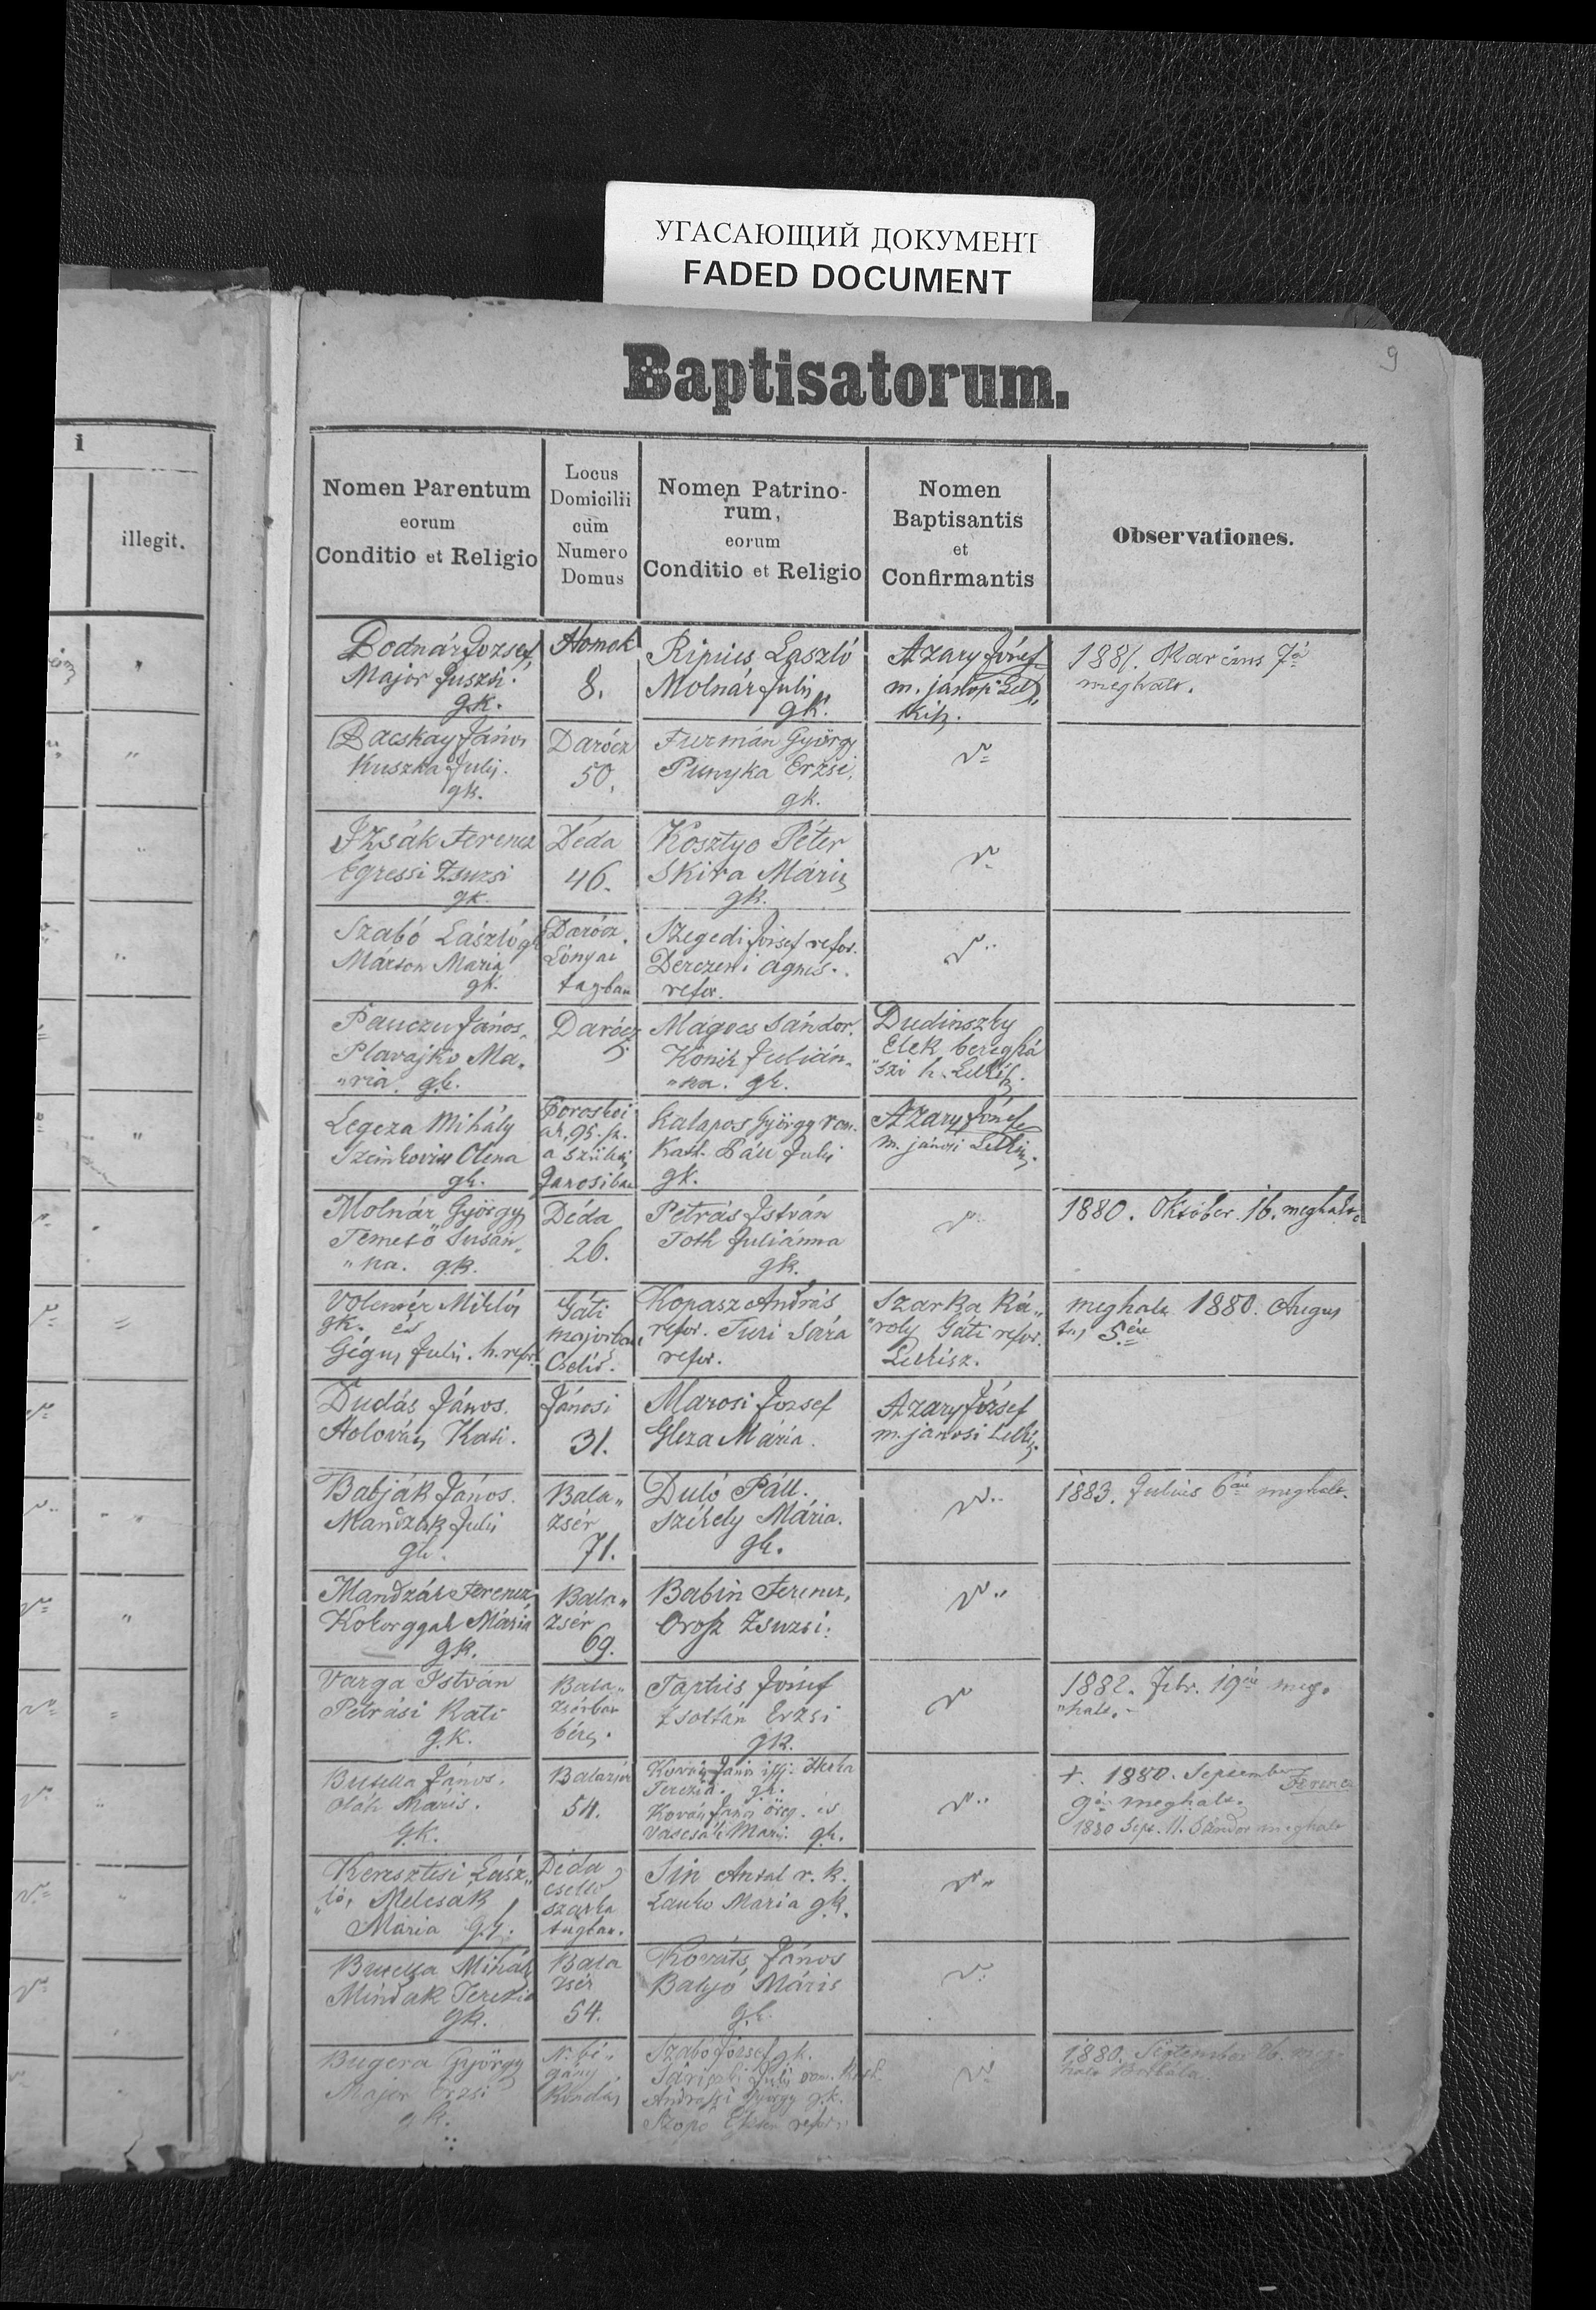 УГАСАЮЩИЙ ДОКУМЕНТ
FADED DOCUMENT
9
Baptisatorum.
i
illegit.
Nomen Parentum
eorum
Conditio et Religio
Locus
Domicilii
cum
Numero
Domus
Nomen Patrino-
rum,
eorum
Conditio et Religio
Nomen
Baptisantis
et
Confirmantis
Observationes.
Bodnár Jozsef
Major Juszti
gk.
Homok
8.
Ripics László
Molnár Juli
gk.
Azary József
m. jánosi Lelk.
1881. 7én
meghalt.
Bacskay János
Kuszka Juli.
gk.
Darócz
50.
Furmán György
Punyka Erzsi.
gk.
Izsák Ferencz
Egressi Zsuzsi
gk.
Déda
46.
Kosztyo Péter
Skira Mári
gk.
Szabó László gk
Márton Maria
gk.
Darócz
Lónyai
tagban
Szegedi József refor.
Derczeni Agnes.
refor.
Pauczu János,
Plavajko Ma„
„ria. gk.
Darócz
5.
Magocs Sándor.
Konik Julián„
„na. gk.
Dudinszky
Elek beregszá
„szi h. Lelkész.
Legeza Mihály
Olena
gk.
a szürkei
Kalapos György rom.
Kath. Páll Juli
gk.
Azary József
m. jánosi Lelkész.
Molnár György
Temető Susán„
„na. gk.
Déda
26.
Petrás István
Toth Juliánna
gk.
1880. Október. 16. meghalt.
Miklós
gk. és
Gégus Juli. h. refor.
Gáti
majorban
Cseléd.
Kopasz András
refor. Turi Sára
refor.
Szarka Ká„
„roly Gáti refor.
Lelkisz.
meghalt 1880. Augus
tus 5én
Dudás János.
Holovács Kati.
Jánosi
31.
Marosi Jozsef
Gleza Mária.
Azary József
m. janosi Lelkész.
Babják János.
Mandzák Juli
gk.
Bala„
zsér
71.
Duló Páll.
Székely Mária.
gk.
1883. Julius 6án meghalt.
Mandzák Ferencz,
Mária
gk.
Bala„
zsér
69.
Babin Ferencz,
Orosz Zsuzsi.
Varga István
Petrási Kati
gk.
Bala„
zsérban
béres.
József
Zsoltán Erzsi
gk.
1882. Febr. 19én meg„
„halt.
Butella János.
Oláh Máris.
gk.
Balazsér
54.
Kovács János ifj.
Terezia. gk.
Kovács János öreg. és
Mari. gk.
+. 1880. September
Ferencz
9én meghalt.
1880 Sept. 11. Sándor meghalt
Keresztesi Lász„
„ló, Melcsak
Mária gk.
Déda
cseléd
szarka
tagban.
Sin Antal r. k.
Lauko Maria gk.
Butella Mihály
Mindak Terezia
gk.
Bala
zsér
54.
Kováts János
Balyó Máris
gk.
Bugera György
Major Erzsi
gk.
N. bé„
gány
Szabó József gk.
Juli rom. Kath.
György gk.
refor.
1880. September 26. meg„
halt Borbála.